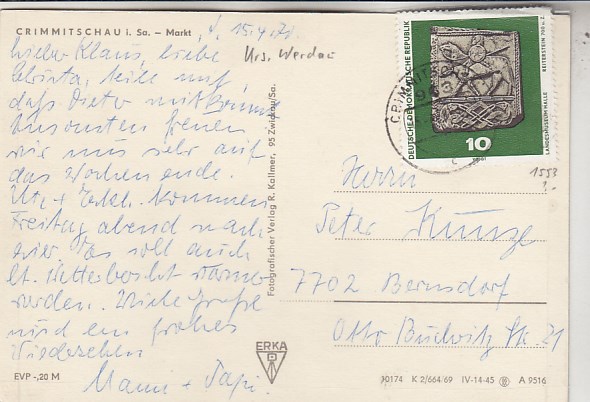 CRIMMITSCHAU i. Sa. — Markt
15.4.71.
Krs. Werdau
Lieber Klaus, liebe
Christa, teile mit,
daß Dieter mit
Ansonsten freuen
wir uns sehr auf
das Wochenende.
kommen
Freitag abend nach
hier. Es soll auch
lt. Wetterbericht wärmer
werden. Viele Grüße
und ein frohes
Wiedersehen
Mama + Papi.
EVP -,20 M
Fotografischer Verlag R. Kallmer, 95 Zwickau/Sa.
ERKA
DEUTSCHE DEMOKRATISCHE REPUBLIK
REITERSTEIN 700 u. Z.
LANDESMUSEUM HALLE
10
CRIMMITSCHAU
963
1553
Herrn
Peter Kunze
7702 Bernsdorf
Otto Buchwitz Str. 21
10174 K 2/664/69 IV-14-45 A 9516